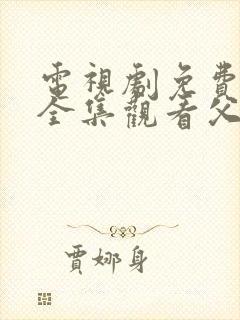 電視劇免費
全集觀看父
賈娜身